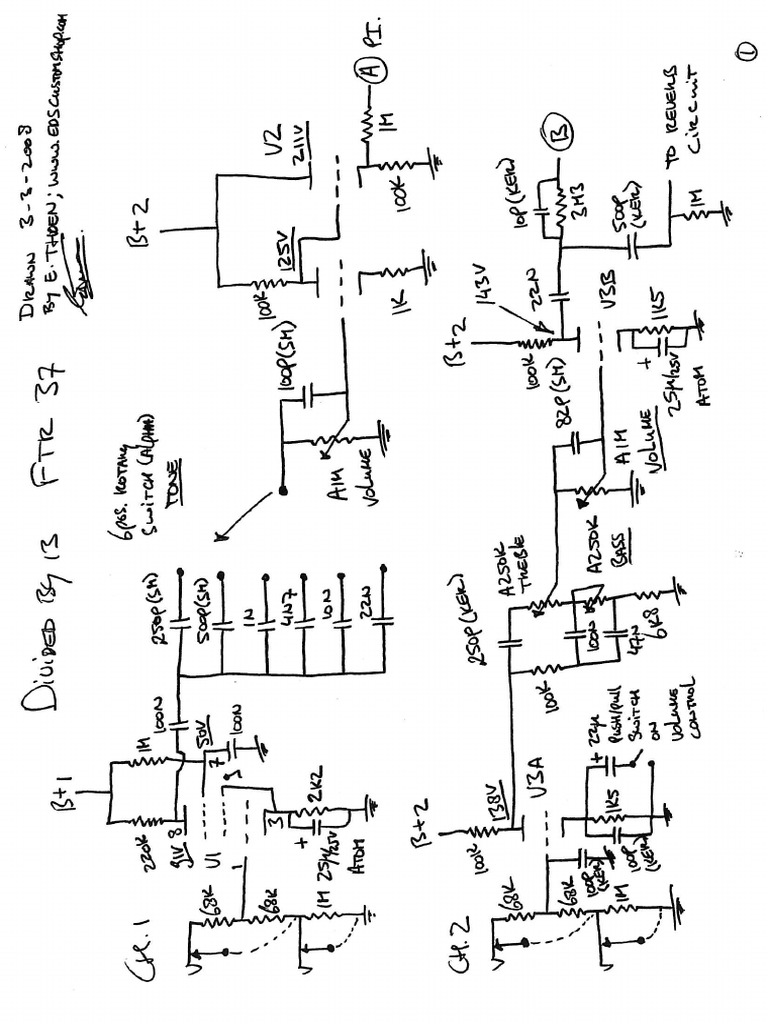 DIVIDED BY 13 FTR 37
DRAWN 3-3-2008
BY E. THOEN; WWW.EDSCUSTOMSHOP.COM
CH. 1
68K
68K
1M
B+1
220K
1M
91V
8
U1
1
3
7
9
50V
100N
2K2
+
25µ/25V
ATOM
100N
250P(SM)
500P(SM)
1N
4N7
10N
22N
6 POS. ROTARY
SWITCH (ALPHA)
TONE
100P(SM)
A1M
VOLUME
B+2
100K
125V
V2
211V
1K
100K
1M
A
PI.
CH. 2
68K
68K
1M
100P
(KER)
B+2
100K
138V
V3A
1K5
100P
(KER)
+ 22µ
PUSH/PULL
SWITCH
ON
VOLUME
CONTROL
250P(KER)
100K
A250K
TREBLE
100N
47N
6K8
A250K
BASS
82P(SM)
A1M
VOLUME
B+2
100K
143V
22N
V3B
1K5
+
25µ/25V
ATOM
10P(KER)
3M3
B
500P
(KER)
1M
TO REVERB
CIRCUIT
1